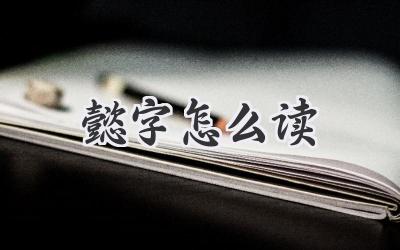 懿字怎么读